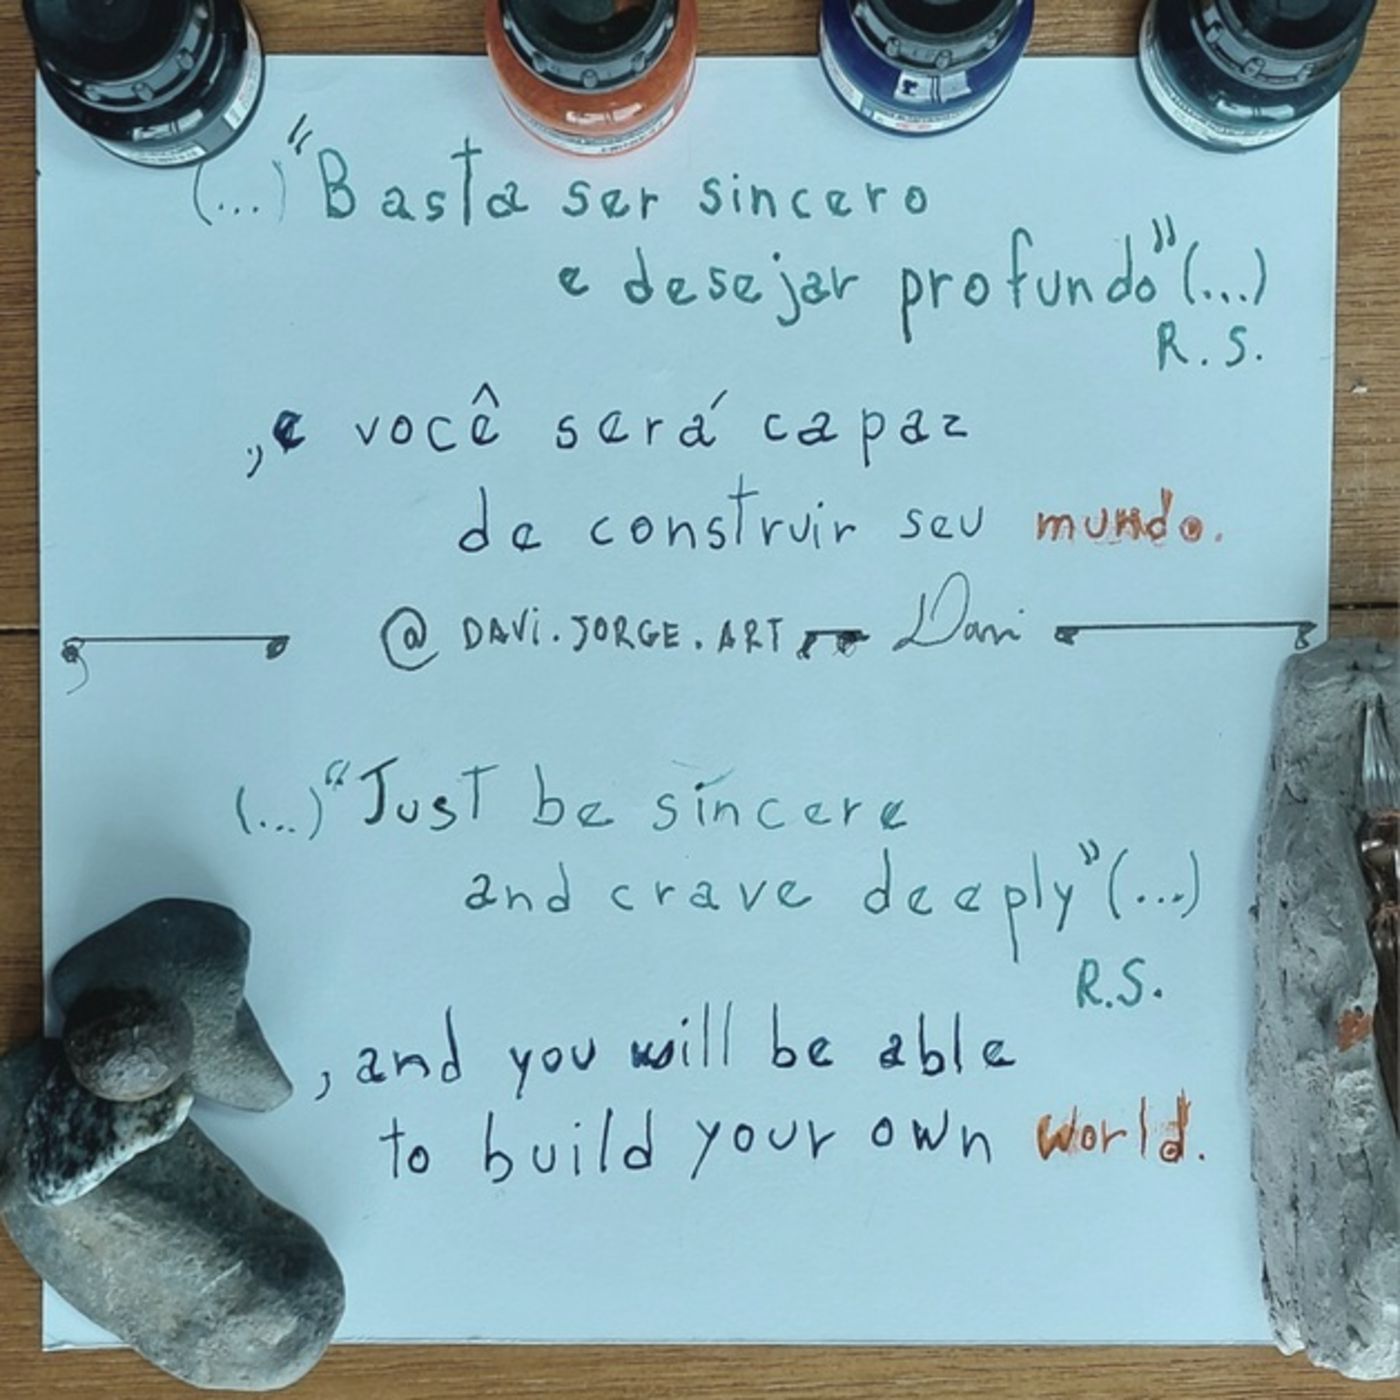 (...) "Basta ser sincero
e desejar profundo" (...)
R.S.
, e você será capaz
de construir seu mundo.
@DAVI.JORGE.ART Davi
(...) "Just be sincere
and crave deeply" (...)
R.S.
, and you will be able
to build your own world.